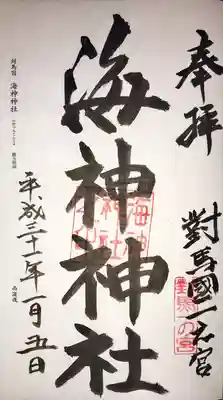 奉拝
對馬國一之宮
對馬一の宮
海神神社
海神
神社
平成三十一年一月五日
対馬国 海神神社